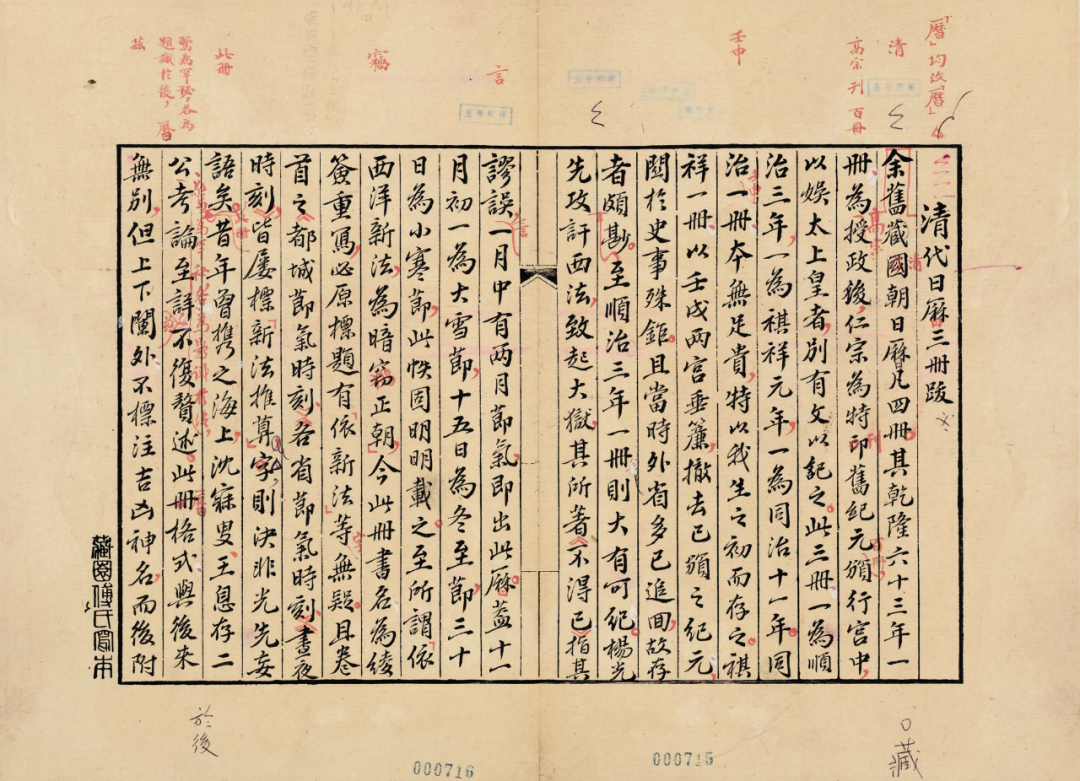 「曆」均改「曆」
清
高宗 刊 百冊
壬申
言
竊
此冊
驚為罕秘,各為
題識於後,曆
茲
清代日厤三冊跋
余舊藏國朝日厤凡四冊其乾隆六十三年一
冊為授政後仁宗為特印舊紀元頒行宮中
以娛太上皇者別有文以記之此三冊一為順
治三年一為祺祥元年一為同治十一年同
治一冊本無足貴特以我生之初而存之祺
祥一冊以壬戌兩宮垂簾撤去已頒之紀元
關於史事殊鉅且當時外省多已進回故存
者頗尠至順治三年一冊則大有可紀楊光
先攻訐西法致起大獄其所著《不得已》指其
謬誤一月中有兩月節氣即出此厤蓋十一
月初一為大雪節十五日為冬至節三十
日為小寒節此帙固明明載之至所謂「依
西洋新法為暗竊正朔今此冊書名為綾
簽重寫必原標題有「依新法」等無疑且卷
首之《都城節氣時刻》《各省節氣時刻》《晝夜
時刻》皆屢標「新法推算」字則決非光先妄
語矣昔年曾攜之海上沈寐叟、王息存二
公考論至詳不復贅述此冊格式與後來
無別但上下闌外不標注吉凶神名而後附
藏園傅氏寫本
藏
於後
000715
000716